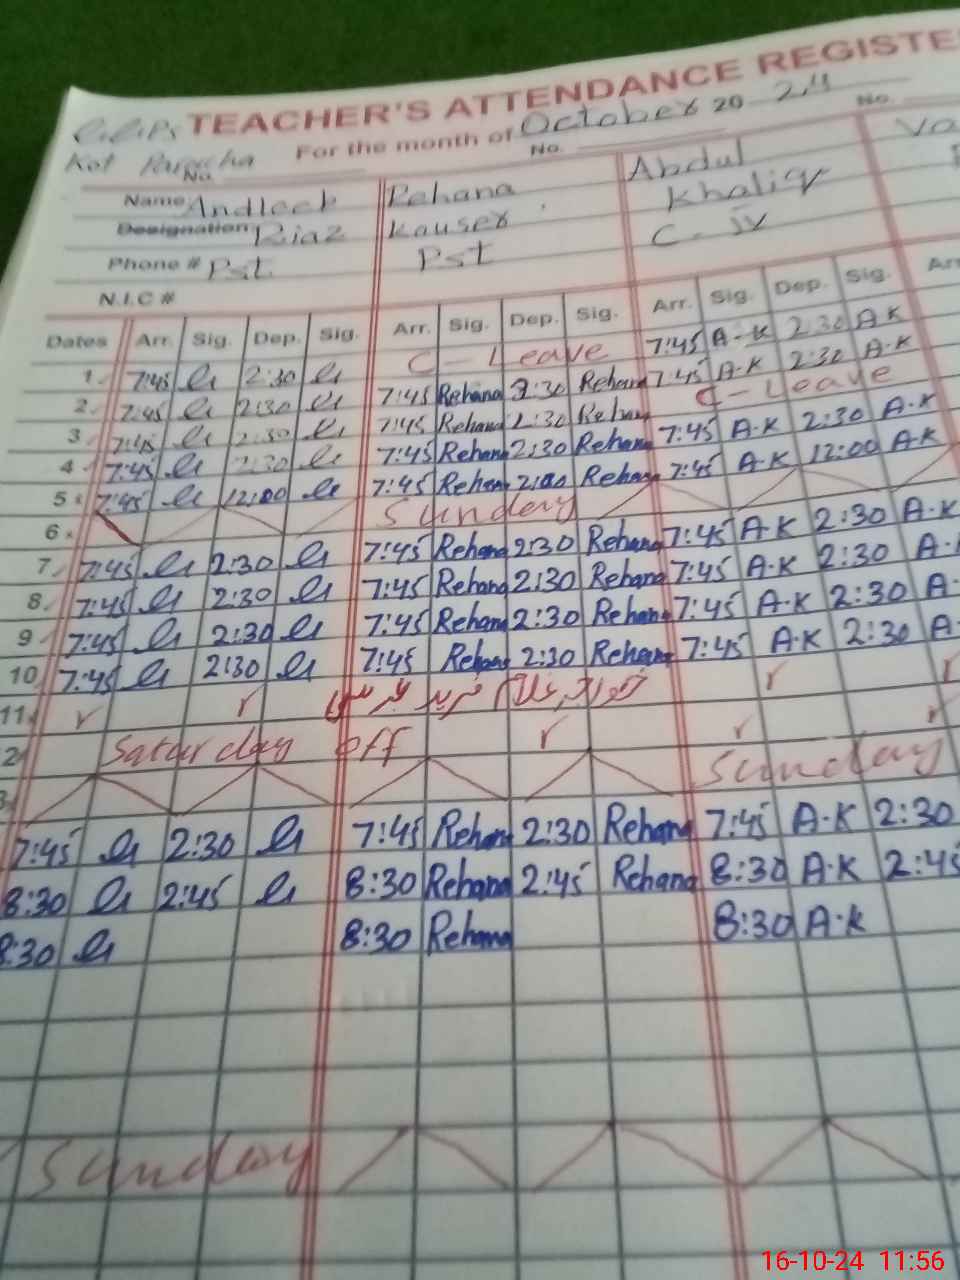 TEACHER'S ATTENDANCE REGISTE
Kot
For the month of October 20 24
No. No. No.
Name Andleeb Rehana Abdul
Designation Riaz Kauser Khaliq
Phone # Pst Pst C-iv
N.I.C #
Dates Arr. Sig. Dep. Sig. Arr. Sig. Dep. Sig. Arr. Sig. Dep. Sig. Arr
1 7:45 2:30 C-Leave 7:45 A-K 2:30 AK
2 7:45 2:30 7:45 Rehana 2:30 Rehana 7:45 A-K 2:30 A-K
3 7:45 2:30 7:45 Rehana 2:30 Rehana C-Leave
4 7:45 2:30 7:45 Rehana 2:30 Rehana 7:45 A.K 2:30 A.K
5 7:45 12:00 7:45 Rehana Rehana 7:45 A.K 12:00 A.K
6 Sunday
7 7:45 2:30 7:45 Rehana 2:30 Rehana 7:45 A.K 2:30 A.K
8 7:45 2:30 7:45 Rehana 2:30 Rehana 7:45 A.K 2:30 A.
9 7:45 2:30 7:45 Rehana 2:30 Rehana 7:45 A.K 2:30 A
10 7:45 2:30 7:45 Rehana 2:30 Rehana 7:45 A.K 2:30 A
11
2 Saturday off
3 Sunday
7:45 2:30 7:45 Rehana 2:30 Rehana 7:45 A.K 2:30
8:30 2:45 8:30 Rehana 2:45 Rehana 8:30 A.K 2:45
8:30 8:30 Rehana 8:30 A.K
Sunday
16-10-24 11:56